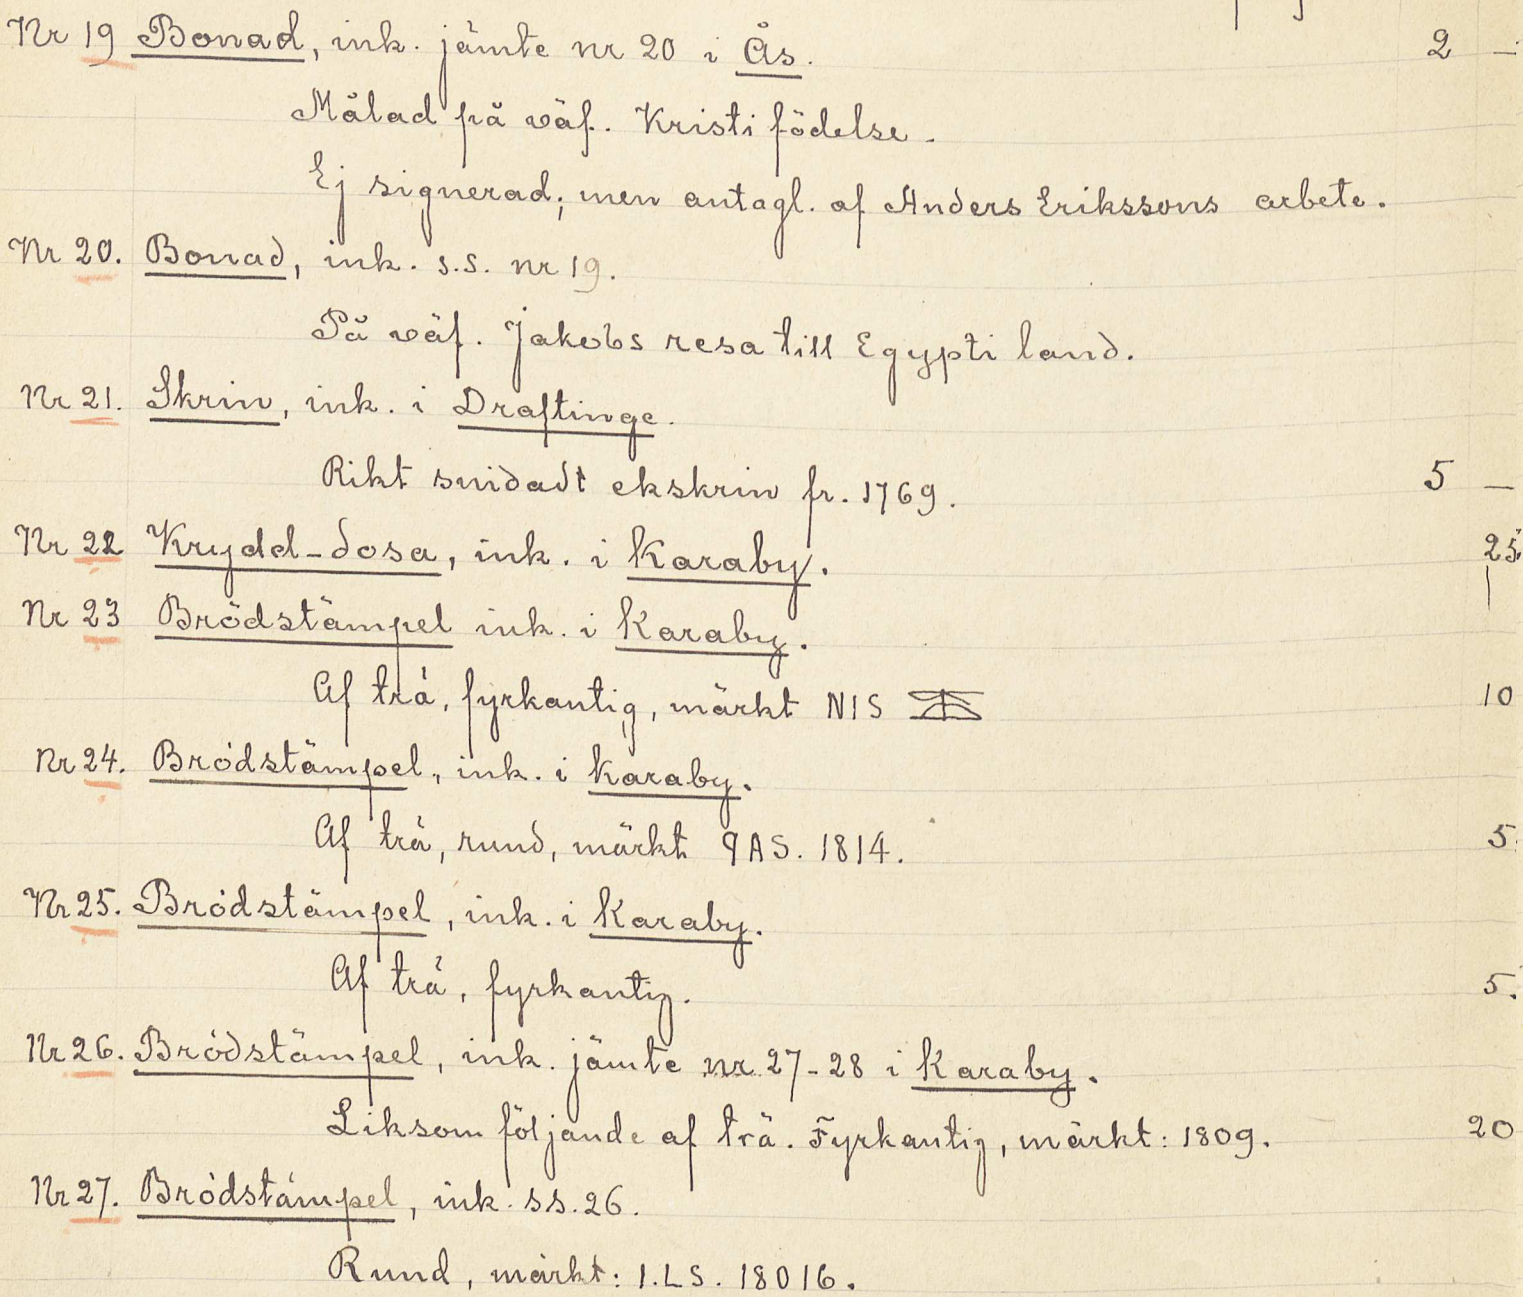 Nr 19 Bonad, ink. jämte nr 20 i Ås. 2 —
Målad på väf. Kristi födelse.
Ej signerad; men antagl. af Anders Erikssons arbete.
Nr 20. Bonad, ink. s.s. nr 19.
På väf. Jakobs resa till Egypti land.
Nr 21. Skrin, ink. i Draftinge.
Rikt snidadt ekskrin fr. 1769. 5 —
Nr 22 Krydd-dosa, ink. i Karaby. 25
Nr 23 Brödstämpel ink. i Karaby.
Af trä, fyrkantig, märkt NIS 10
Nr 24. Brödstämpel, ink. i Karaby.
Af trä, rund, märkt 9AS. 1814. 5.
Nr 25. Brödstämpel, ink. i Karaby.
Af trä, fyrkantig. 5.
Nr 26. Brödstämpel, ink. jämte nr 27-28 i Karaby.
Liksom följande af trä. Fyrkantig, märkt: 1809. 20
Nr 27. Brödstämpel, ink. ss. 26.
Rund, märkt: I.LS. 18016.